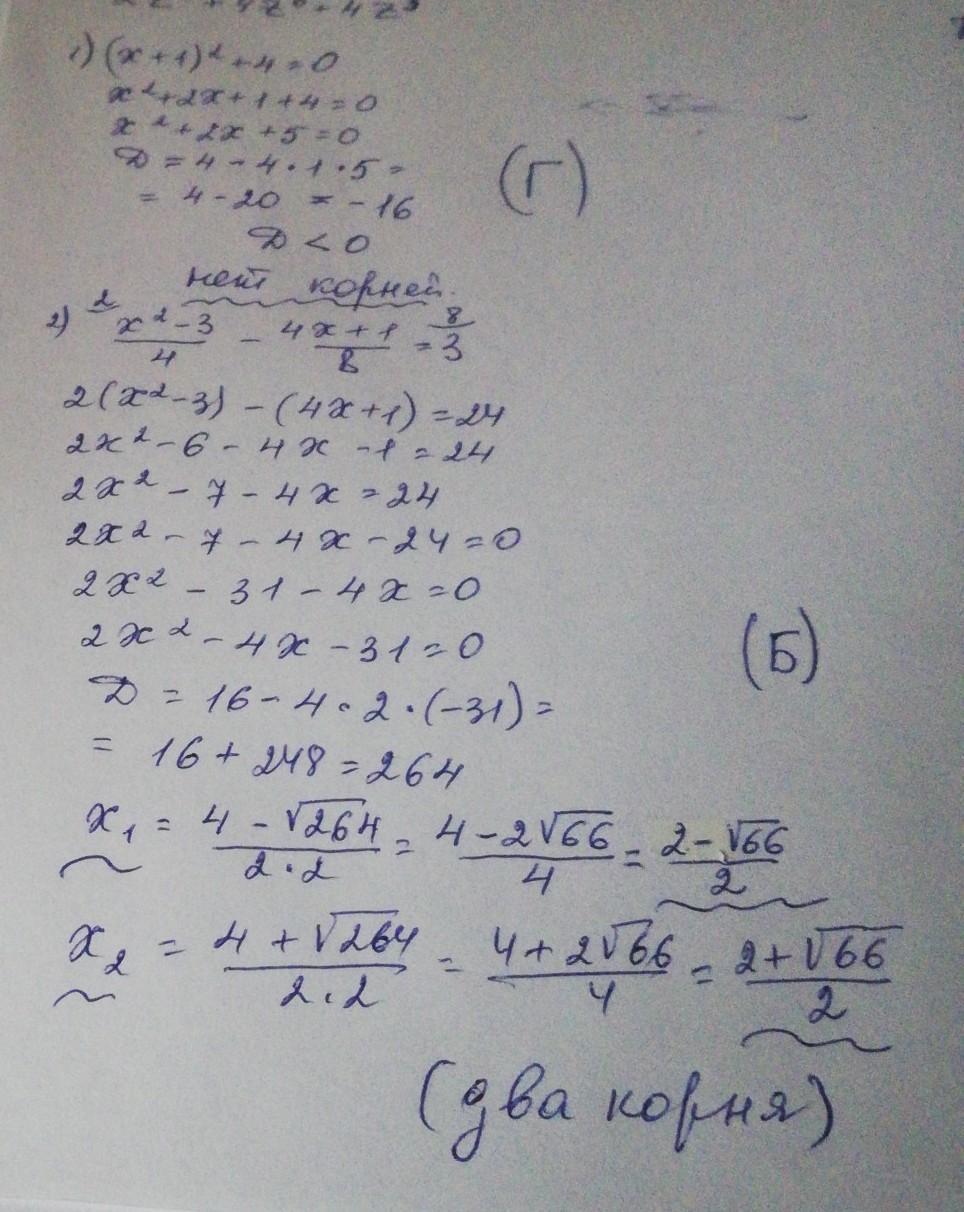 1) (x+1)² + 4 = 0
x² + 2x + 1 + 4 = 0
x² + 2x + 5 = 0
D = 4 - 4·1·5 =
= 4 - 20 = -16
(Г)
D < 0
нет корней.
2) ²⁄ (x² - 3)/4 - (4x + 1)/8 = ⁸⁄ 3
2(x² - 3) - (4x + 1) = 24
2x² - 6 - 4x - 1 = 24
2x² - 7 - 4x = 24
2x² - 7 - 4x - 24 = 0
2x² - 31 - 4x = 0
2x² - 4x - 31 = 0
(Б)
D = 16 - 4·2·(-31) =
= 16 + 248 = 264
x₁ = (4 - √264)/(2·2) = (4 - 2√66)/4 = (2 - √66)/2
x₂ = (4 + √264)/(2·2) = (4 + 2√66)/4 = (2 + √66)/2
(два корня)